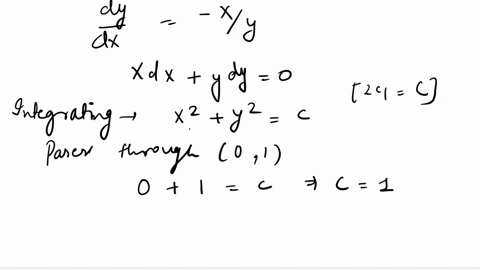 dy/dx = -x/y
xdx + ydy = 0
[2c1 = C]
Integrating → x² + y² = c
Passes through (0,1)
0 + 1 = c ⇒ C = 1